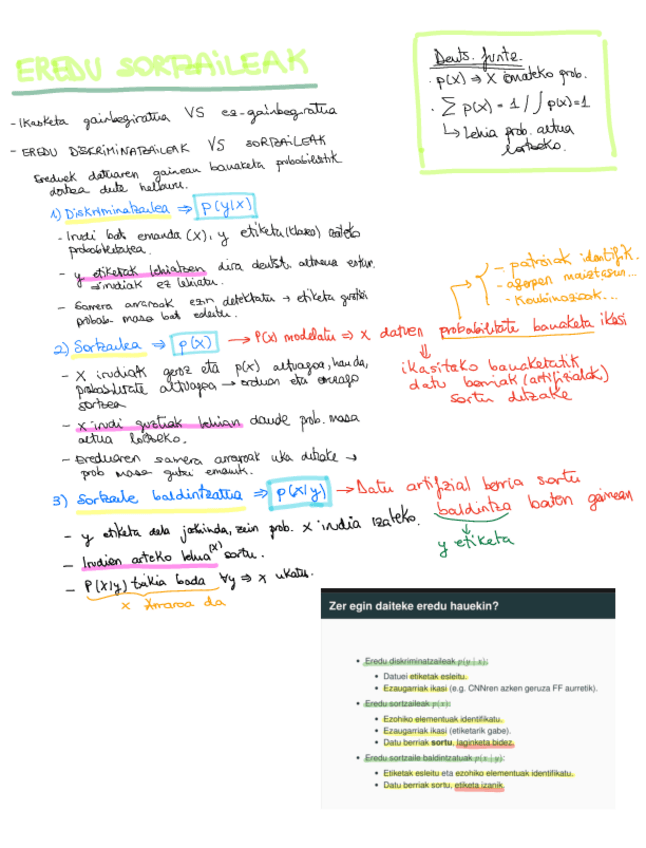 EREDU SORTZAILEAK
Dents. funtz.
· p(x) ⇒ x emateko prob.
· ∑ p(x) = 1 / ∫ p(x) = 1
↳ Lehia prob. altua lortzeko.
- Ikasketa gainbegiratua VS ez-gainbegiratua
- EREDU DISKRIMINATZAILEAK VS SORTZAILEAK
Ereduek datuaren gainean banaketa probabilistik
dute helburu.
1) Diskriminatzailea ⇒ p(y|x)
- Irudi bat emanda (x), y etiketa (klasea) izateko
probabilitatea.
- y etiketak lehiatzen dira dentsi. altuena
irudiak ez lehiatu.
- Sarrera arraroak ezin detektatu → etiketa guztiei
probab. masa bat esleitu.
- patroiak identifik.
- maiztasun...
- Konbinazioak...
2) Sortzailea ⇒ p(x) → P(x) modelatu ⇒ x datuen probabilitate banaketa ikasi
ikasitako banaketatik
datu berriak (artifizialak)
sortu ditzake
- x irudiak geroz eta p(x) altuagoa, hau da,
probabilitate altuagoa → orduan eta
sortzea
- x irudi guztiak lehian daude prob. masa
altua lortzeko.
- Ereduaren sarrera arraroak uka ditzake →
prob masa gutxi emanik.
3) Sortzaile baldintzatua ⇒ p(x|y) → Datu artifizial berria sortu
baldintza baten gainean
y etiketa
- y etiketa dela jakinda, zein prob. x irudia izateko.
- Irudien arteko lehia (x) sortu.
- P(x|y) txikia bada ∀y ⇒ x ukatu.
x arraroa da
Zer egin daiteke eredu hauekin?
• Eredu diskriminatzaileak p(y | x):
• Datuei etiketak esleitu.
• Ezaugarriak ikasi (e.g. CNNren azken geruza FF aurretik).
• Eredu sortzaileak p(x):
• Ezohiko elementuak identifikatu.
• Ezaugarriak ikasi (etiketarik gabe).
• Datu berriak sortu, laginketa bidez.
• Eredu sortzaile baldintzatuak p(x | y):
• Etiketak esleitu eta ezohiko elementuak identifikatu.
• Datu berriak sortu, etiketa izanik.